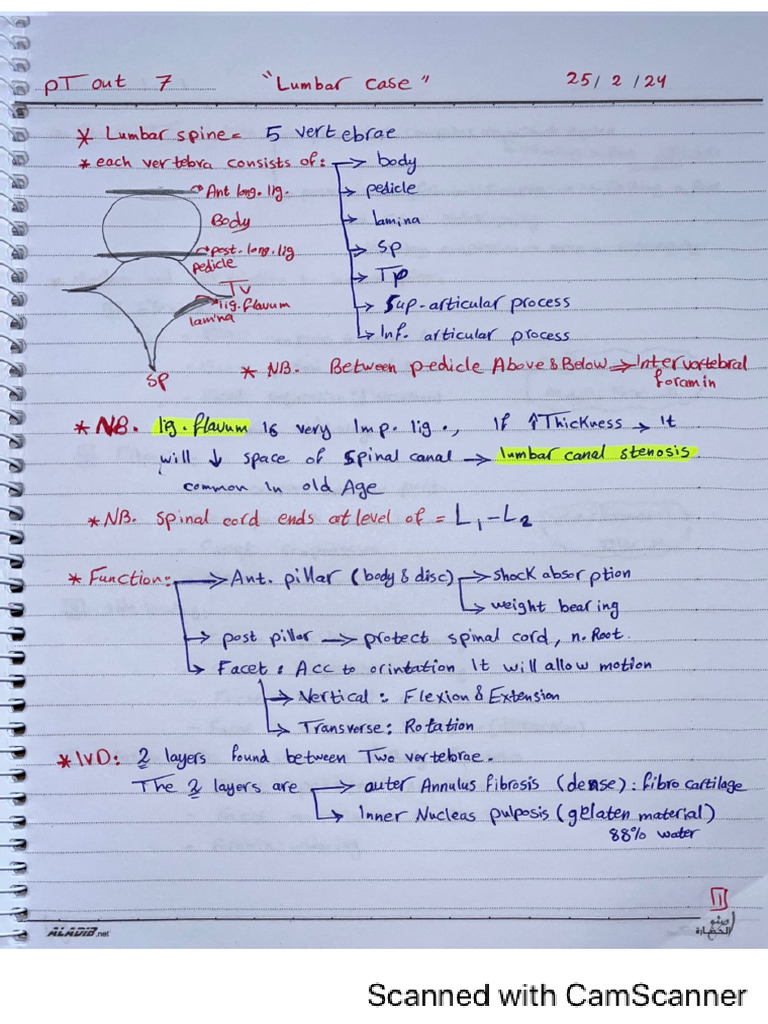 PT out 7 "Lumbar case" 25/2/24
* Lumbar spine = 5 vertebrae
* each vertebra consists of: → body
→ pedicle
→ lamina
→ SP
→ TP
→ Sup. articular process
→ Inf. articular process
Ant long. lig.
Body
post. long. lig
pedicle
Tv
lig. flavum
lamina
SP
* NB. Between pedicle Above & Below ⇒ Intervertebral
foramin
* NB. lig. flavum is very Imp. lig., If ↑ Thickness → It
will ↓ space of spinal canal → lumbar canal stenosis.
common In old Age
* NB. spinal cord ends at level of = L1-L2
* Function: → Ant. pillar (body & disc) → shock absorption
→ weight bearing
→ post pillar → protect spinal cord, n. Root.
→ Facet : Acc to orintation It will allow motion
→ Vertical : Flexion & Extension
→ Transverse : Rotation
* IVD: 2 layers found between Two vertebrae.
The 2 layers are → outer Annulus fibrosis (dense) : fibro cartilage
→ Inner Nucleas pulposis (gelaten material)
88% water
1
ALADIB.net
Scanned with CamScanner